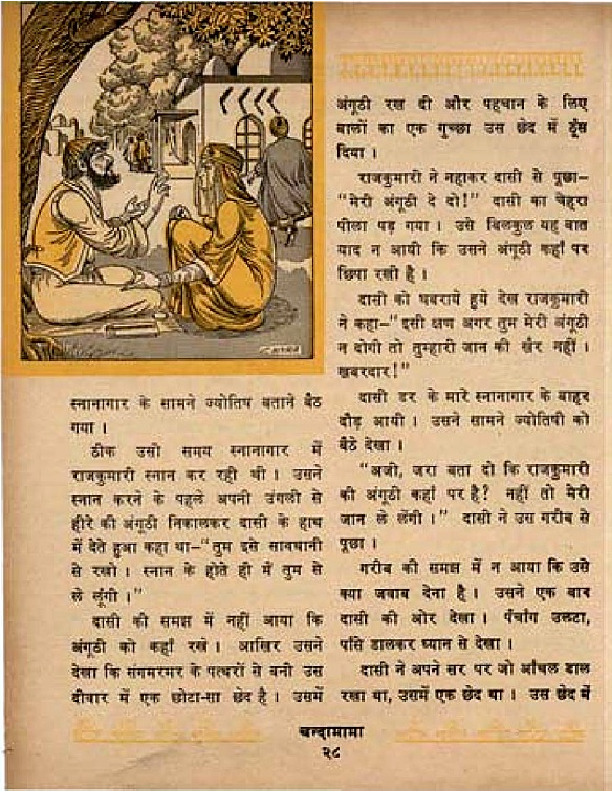 स्नानागार के सामने ज्योतिष बताने बैठ
गया ।
ठीक उसी समय स्नानागार में
राजकुमारी स्नान कर रही थी । उसने
स्नान करने के पहले अपनी उंगली से
हीरे की अंगूठी निकालकर दासी के हाथ
में देते हुआ कहा था-“तुम इसे सावधानी
से रखो । स्नान के होते ही मैं तुम से
ले लूंगी ।”
दासी की समझ में नहीं आया कि
अंगूठी को कहाँ रखे । आखिर उसने
देखा कि संगमरमर के पत्थरों से बनी उस
दीवार में एक छोटा-सा छेद है । उसमें
अंगूठी रख दी और पहचान के लिए
बालों का एक गुच्छा उस छेद में ठूँस
दिया ।
राजकुमारी ने नहाकर दासी से पूछा-
“मेरी अंगूठी दे दो!” दासी का चेहरा
पीला पड़ गया । उसे बिलकुल यह बात
याद न आयी कि उसने अंगूठी कहाँ पर
छिपा रखी है ।
दासी को घबराये हुये देख राजकुमारी
ने कहा-“इसी क्षण अगर तुम मेरी अंगूठी
न दोगी तो तुम्हारी जान की खैर नहीं ।
खबरदार!”
दासी डर के मारे स्नानागार के बाहर
दौड़ आयी । उसने सामने ज्योतिषी को
बैठे देखा ।
“अजी, जरा बता दो कि राजकुमारी
की अंगूठी कहाँ पर है? नहीं तो मेरी
जान ले लेंगी ।” दासी ने उस गरीब से
पूछा ।
गरीब की समझ में न आया कि उसे
क्या जवाब देना है । उसने एक बार
दासी की ओर देखा । पंचांग उलटा,
पाँसे डालकर ध्यान से देखा ।
दासी ने अपने सर पर जो आँचल डाल
रखा था, उसमें एक छेद था । उस छेद में
चन्दामामा
२८